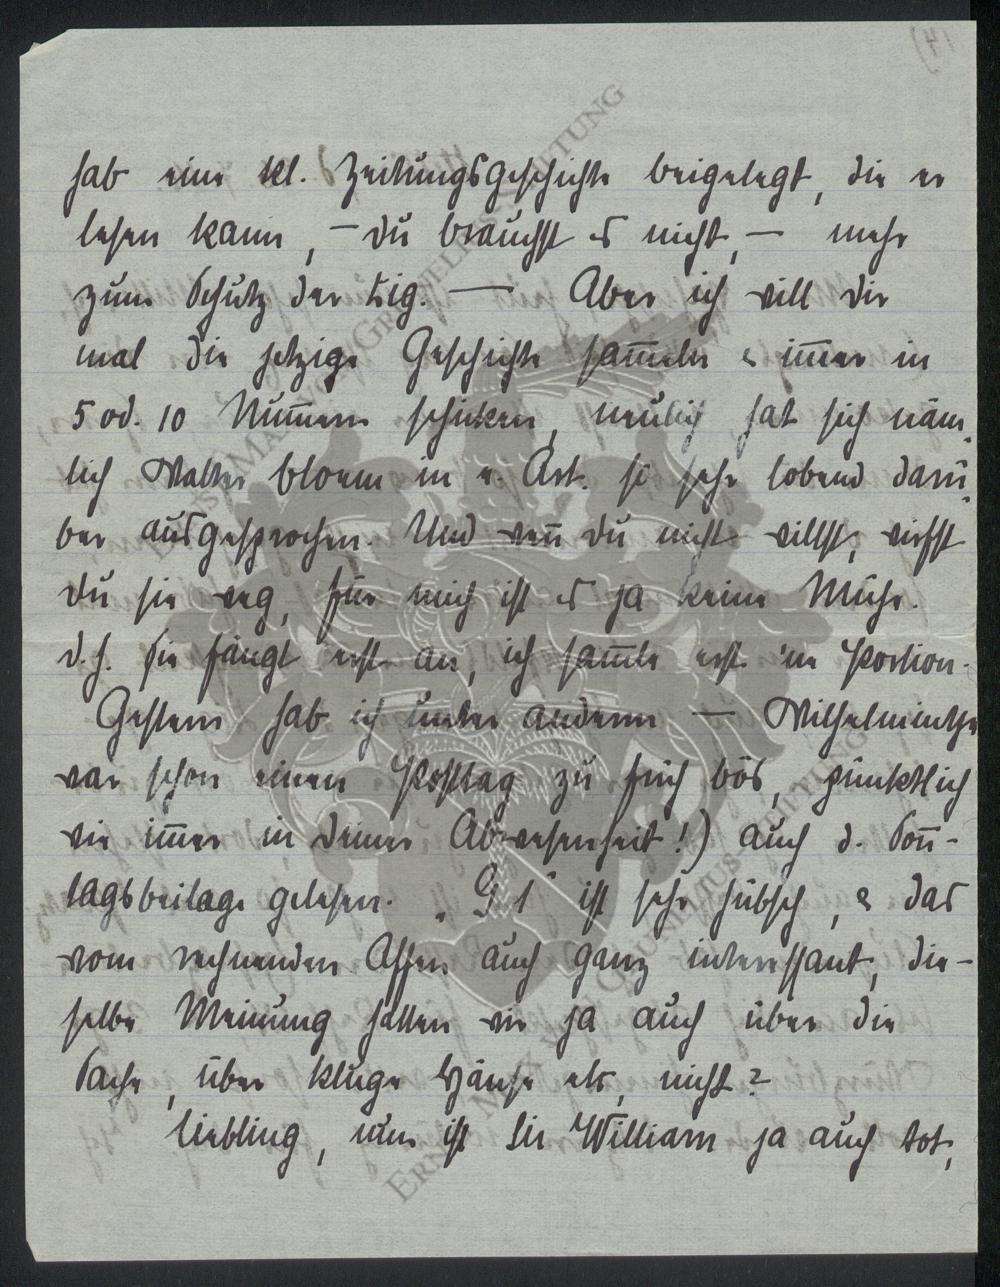 hab eine kl. Zeitungsgeschichte beigelegt, die er
lesen kann, – Du brauchst es nicht, – mehr
zum Schutz der Zig. — Aber ich will Dir
mal die jetzige Geschichte sam̅eln & im̅er in
5 od. 10 Num̅ern schicken, neulich hat sich näm-
lich Walter Bloem in e. Art. so sehr lobend darü-
ber ausgesprochen. Und wen̅ Du nicht willst, wirfst
Du sie weg, für mich ist es ja keine Mühe.
d.h. sie fängt erst an, ich sam̅le erst 'ne Portion.
Gestern hab ich unter anderm — Wilhelminche
war schon einen Posttag zu früh bös, pünktlich
wie im̅er in Deiner Abwesenheit!) auch d. Son̅-
tagsbeilage gelesen. „G 1" ist sehr hübsch, & das
vom rechnenden Affen auch ganz interessant, die-
selbe Meinung hatten wir ja auch über die
Sache, über kluge Hänse etc, nicht?
Liebling, nun ist Sir William ja auch tot,